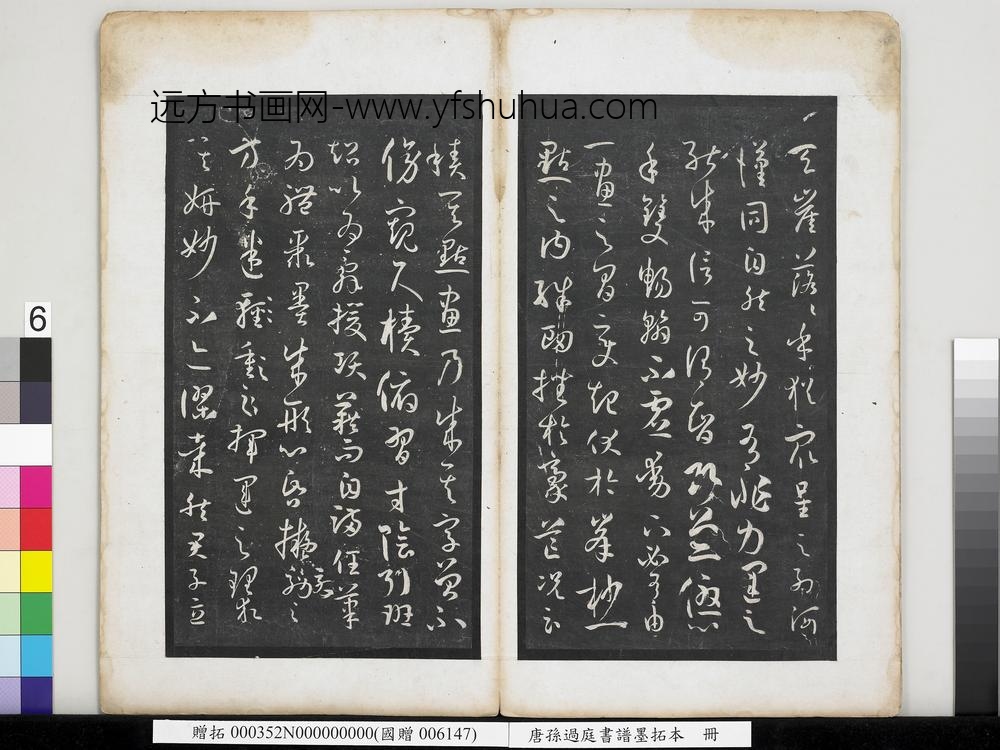 远方书画网-www.yfshuhua.com
天崖落落乎猶衆星之列河
漢同自然之妙有非力運之
能成信可謂智巧兼優心
手雙暢翰不虛動下必有由
一畫之間變起伏於峯杪一
點之內殊衄挫於豪芒況云
積其點畫乃成其字曾不
傍窺尺牘俯習寸陰引班
超以為辭援項籍而自滿任筆
為體聚墨成形心昏擬效之
方手迷揮運之理求
其妍妙不亦謬哉然君子立
6
贈拓 000352N000000000(國贈 006147)
唐孫過庭書譜墨拓本 冊